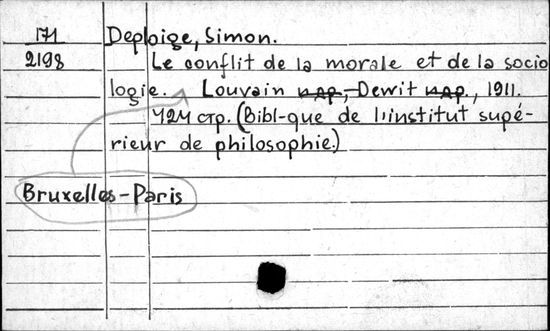 171
2198
Deploige, Simon.
Le conflit de la morale et de la socio
logie. Louvain и др., Dewit и др., 1911.
424 стр. (Bibl-que de l'institut supé-
rieur de philosophie.)
Bruxelles-Paris